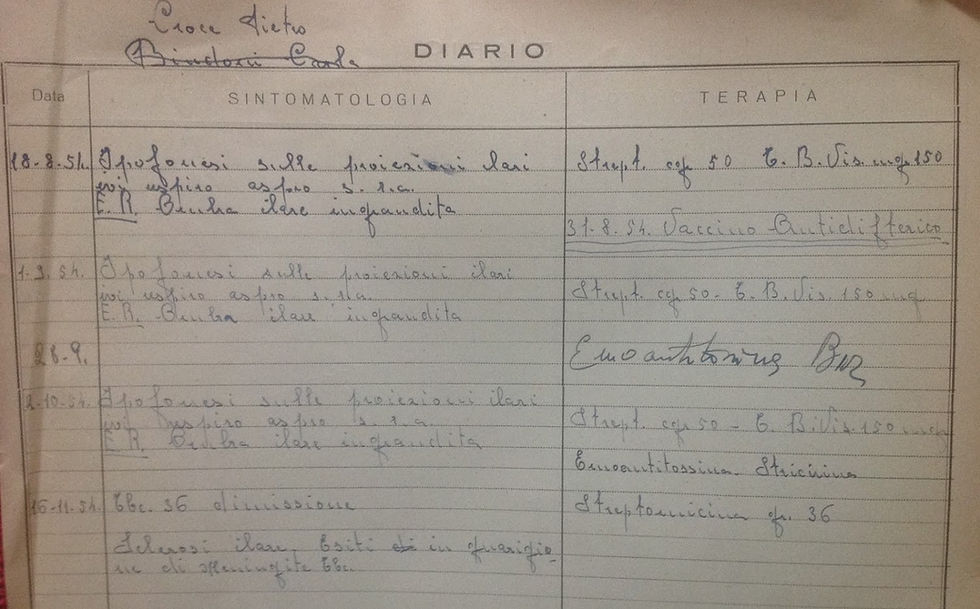 Croce Pietro
Bindoni Carla
DIARIO
Data SINTOMATOLOGIA TERAPIA
18-8-54. Ipofonesi sulle proiezioni ilari Strept. cg 50 T.B.Vis. mg 150
ivi respiro aspro s.r.a.
E.R. Ombra ilare ingrandita
31-8.54. Vaccino Antidifterico
1-9.54. Ipofonesi sulle proiezioni ilari
ivi respiro aspro s.r.a. Strept. cg. 50 - T.B.Vis. 150 mg
E.R. Ombra ilare ingrandita
28-9. Emoantitossina
2-10-54. Ipofonesi sulle proiezioni ilari
ivi respiro aspro s.r.a. Strept. cg 50 - T.B.Vis. 150 mg
E.R. Ombra ilare ingrandita
Emoantitossina Stricnina
16-11-54. Tbc. 36 dimissione Streptomicina gr. 36
Sclerosi ilare. Esiti di in guarigio
ne di Meningite Tbc.